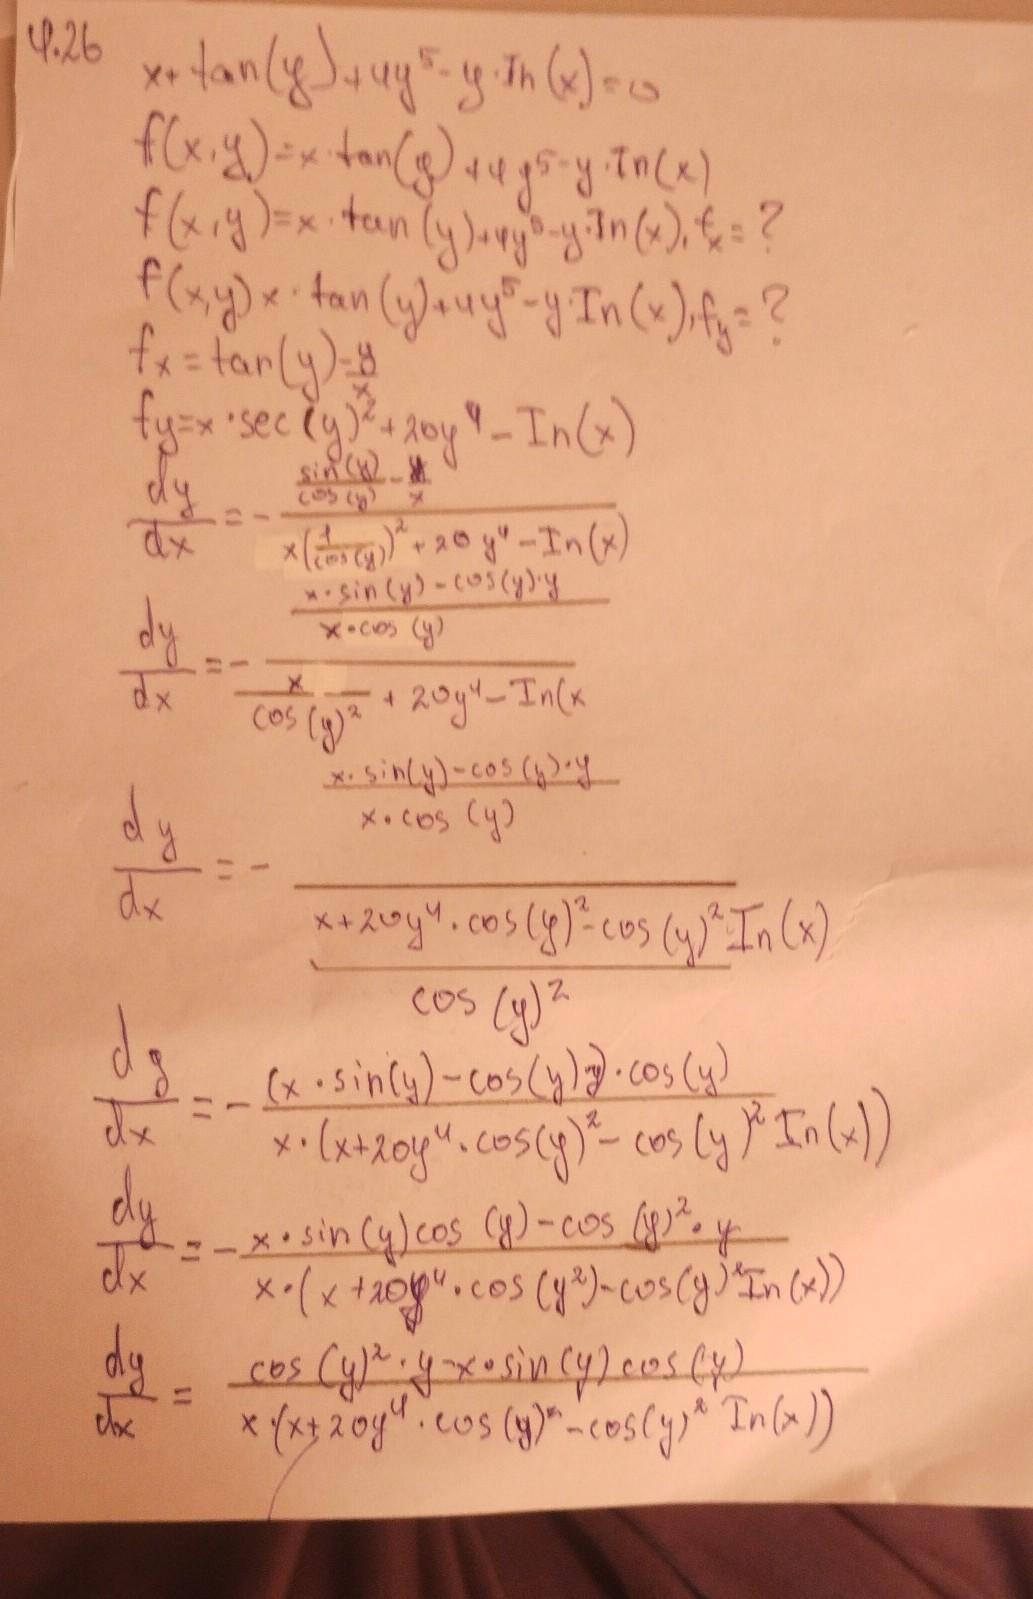 4.26
x+ tan(y)+4y⁵-y·In(x)=0
f(x,y)=x·tan(y)+4y⁵-y·In(x)
f(x,y)=x·tan(y)+4y⁵-y·In(x), fₓ=?
f(x,y)x·tan(y)+4y⁵-y·In(x), fy=?
fx=tan(y)-y/x
fy=x·sec(y)²+20y⁴-In(x)
dy/dx=-(sin(y)/cos(y)-y/x)/(x(1/cos(y))²+20y⁴-In(x))
dy/dx=-((x·sin(y)-cos(y)·y)/(x·cos(y)))/(x/cos(y)²+20y⁴-In(x
dy/dx=-((x·sin(y)-cos(y)·y)/(x·cos(y)))/((x+20y⁴·cos(y)²-cos(y)²In(x))/cos(y)²)
dy/dx=-((x·sin(y)-cos(y)y)·cos(y))/(x·(x+20y⁴·cos(y)²-cos(y)²In(x)))
dy/dx=-(x·sin(y)cos(y)-cos(y)²·y)/(x·(x+20y⁴·cos(y²)-cos(y)²In(x)))
dy/dx=(cos(y)²·y-x·sin(y)cos(y))/(x·(x+20y⁴·cos(y)²-cos(y)²In(x)))